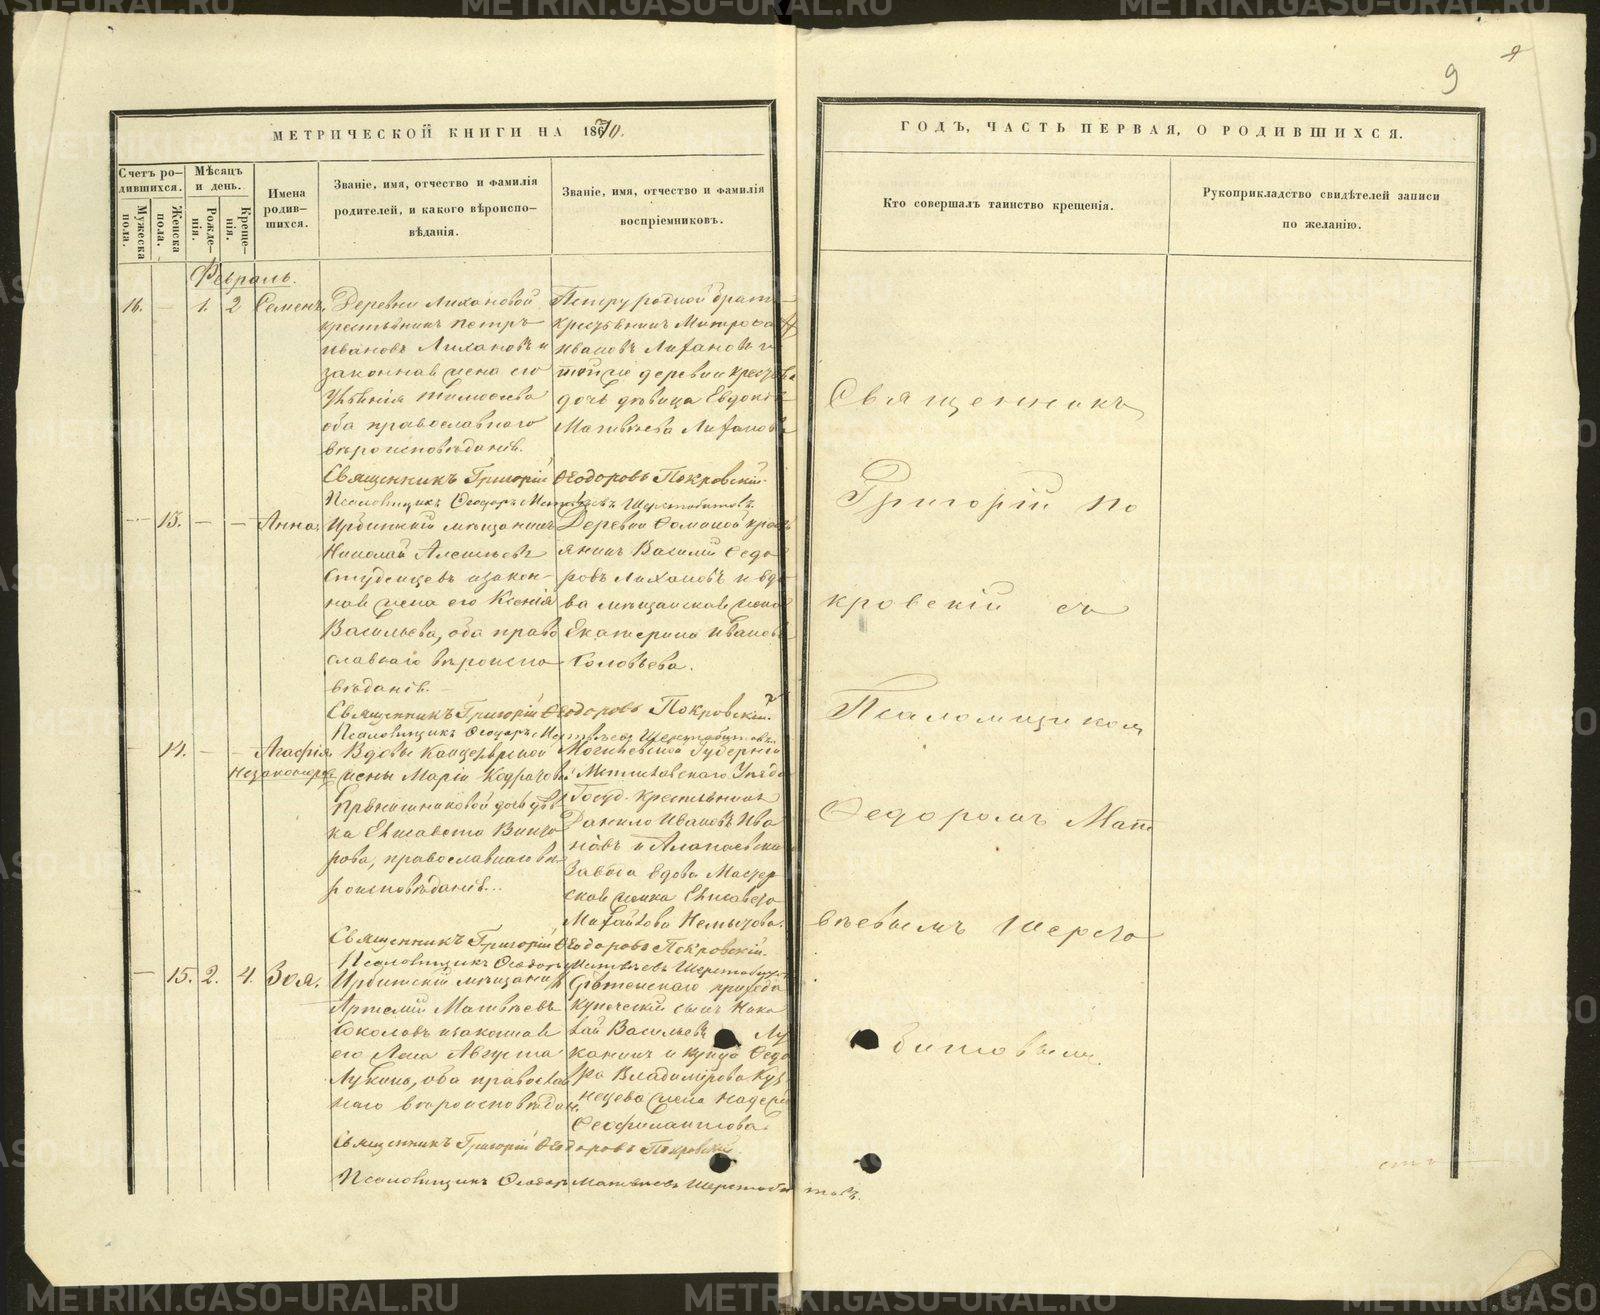 METRIKI.GASO-URAL.RU
9
МЕТРИЧЕСКОЙ КНИГИ НА 1870.
ГОДЪ, ЧАСТЬ ПЕРВАЯ, О РОДИВШИХСЯ.
Счетъ ро-
дившихся.
Мужеска
пола.
Женска
пола.
Мѣсяцъ
и день.
Рожде-
нія.
Креще-
нія.
Имена
родив-
шихся.
Званіе, имя, отчество и фамилія
родителей, и какого вѣроиспо-
вѣданія.
Званіе, имя, отчество и фамилія
воспріемниковъ.
Кто совершалъ таинство крещенія.
Рукоприкладство свидѣтелей записи
по желанію.
Февраль.
16. — 1. 2 Семенъ.
Деревни Лихановой
крестьянинъ Петръ
Ивановъ Лихановъ и
законная жена его
оба православнаго
вѣроисповѣданія.
Петру родной братъ
крестьянинъ Митрофанъ
Ивановъ Лихановъ и
той же деревни крестьян.
дочь дѣвица Евдокія
Матвѣева Лиханова
Священникъ Григорій Ѳеодоровъ Покровскій.
Псаломщикъ Ѳеодоръ Матвѣевъ Шерстобитовъ.
— 13. — — Анна.
Ирбитскій мѣщанинъ
Николай Алексѣевъ
Студенцевъ и закон-
ная жена его Ксенія
Васильева, оба право
славнаго вѣроиспо
вѣданія.
Деревни крест
янинъ Василий Федо
ровъ Лихановъ и вдо
ва мѣщанская жена
Екатерина Иванова
Соловьева.
Священникъ Григорій Ѳеодоровъ Покровскій.
Псаломщикъ Ѳеодоръ Матвѣевъ Шерстобитовъ.
14. — — Агафія
незаконнорож
Вдовы Канцелярской
жены Маріи
дочь дѣв
ка Елисавета Викто
рова, православнаго вѣ
роисповѣданія.
Могилевской Губерніи
Мстиславскаго Уѣзда
Госуд. крестьянинъ
Данило Ивановъ Ива
новъ и Алапаевска
Завода вдова Мастер
ская женка Елисавета
Михайлова Немытова.
Священникъ Григорій Ѳеодоровъ Покровскій.
Псаломщикъ Ѳеодоръ Матвѣевъ Шерстобитовъ
— 15. 2. 4. Зоя.
Ирбитскій мѣщанинъ
Артемій Матвѣевъ
Соколовъ и законная
его жена Августа
Лукина, оба православ
наго вѣроисповѣдан.
Срѣтенскаго прихода
купеческій сынъ Нико
лай Васильевъ Лу
канинъ и купца Федо
ра Владимірова Куз
нецова жена
Феофилактова.
Священникъ Григорій Ѳеодоровъ Покровскій.
Псаломщикъ Ѳеодоръ Матвѣевъ Шерстобитовъ.
Священникъ
Григорій По
кровскій съ
Псаломщикомъ
Федоромъ Мат
вѣевымъ Шерсто
битовымъ